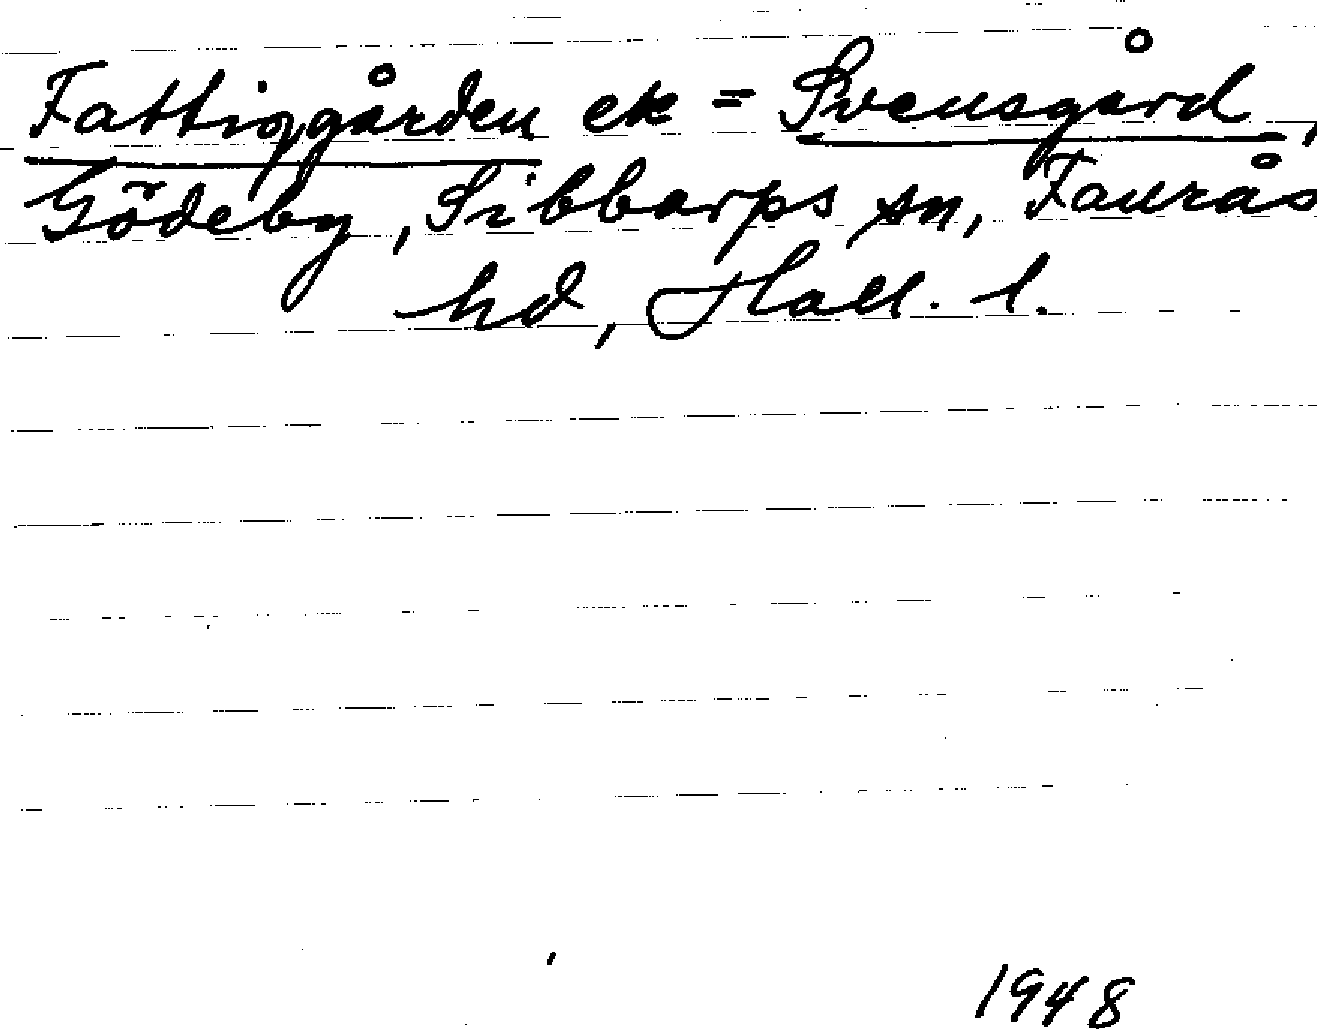 Fattiggården ek = Svensgård,
Gödeby, Sibbarps sn, Faurås
hd, Hall. l.
1948